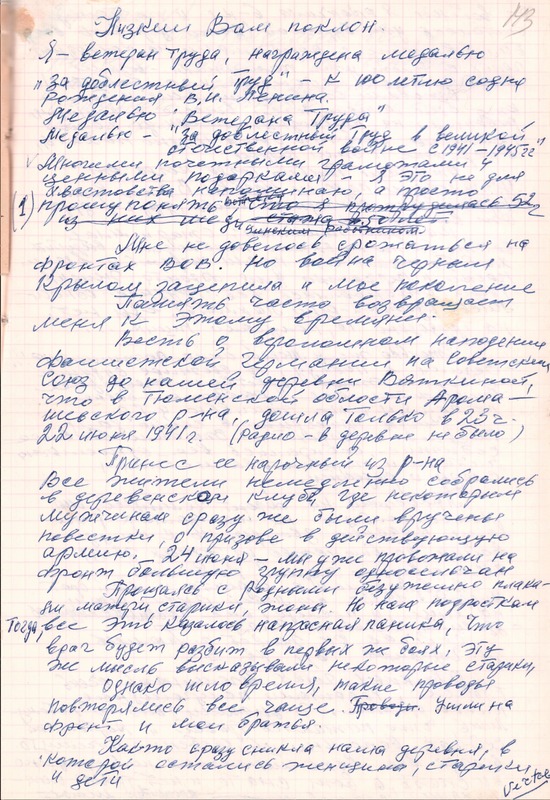 113
Низкий Вам поклон.
Я – ветеран труда, награждена медалью
"За доблестный труд" – к 100 летию со дня
рождения В.И. Ленина.
Медалью "Ветерана Труда"
Медалью – "За доблестный труд в великой
отечественной войне с 1941–1945гг"
Многими почетными грамотами и
ценными подарками. Я это не для
хвастовства напоминаю, а просто
(1) прошу понять что я трудилась 52г
из них мед. стажа
Мне не довелось сражаться на
фронтах ВОВ. Но война черным
крылом зацепила и мое поколение
Память часто возвращает
меня к этому времени.
Весть о вероломном нападении
фашистской Германии на Советский
Союз до нашей деревни Вяткиной,
что в Тюменской области Арома-
шевского р-на, дошла только в 23 ч.
22 июня 1941 г. (радио – в деревне не было)
Принес ее нарочный из р-на
Все жители немедленно собрались
в деревенском клубе, где некоторым
мужчинам сразу же были вручены
повестки, о призыве в действующую
армию. 24 июня – мы уже провожали на
фронт большую группу односельчан
Прощаясь с родными безудержно плака-
ли матери старики, жены. Но нам подросткам
тогда, все это казалось напрасная паника, что
враг будет разбит в первых же боях, эту
же мысль высказывали некоторые старики
Однако шло время, такие проводы
повторялись все чаще. Проводи. Ушли на
фронт и мои братья.
Как-то сразу сникла наша деревня, в
которой остались женщины, старики
и дети